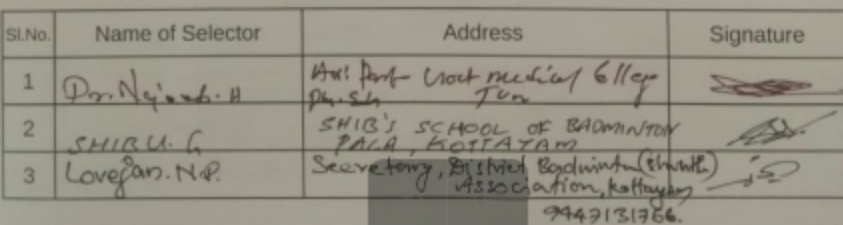 Sl.No. Name of Selector Address Signature
1 Dr. Najeeb. H Asst Prof Govt medical College
TVM
2 SHIBU. G SHIB'S SCHOOL OF BADMINTON
PALA, KOTTAYAM
3 Lovejan. N.P. Secretory, District Badminton (Shuttle)
Association, Kottayam
9447131766.